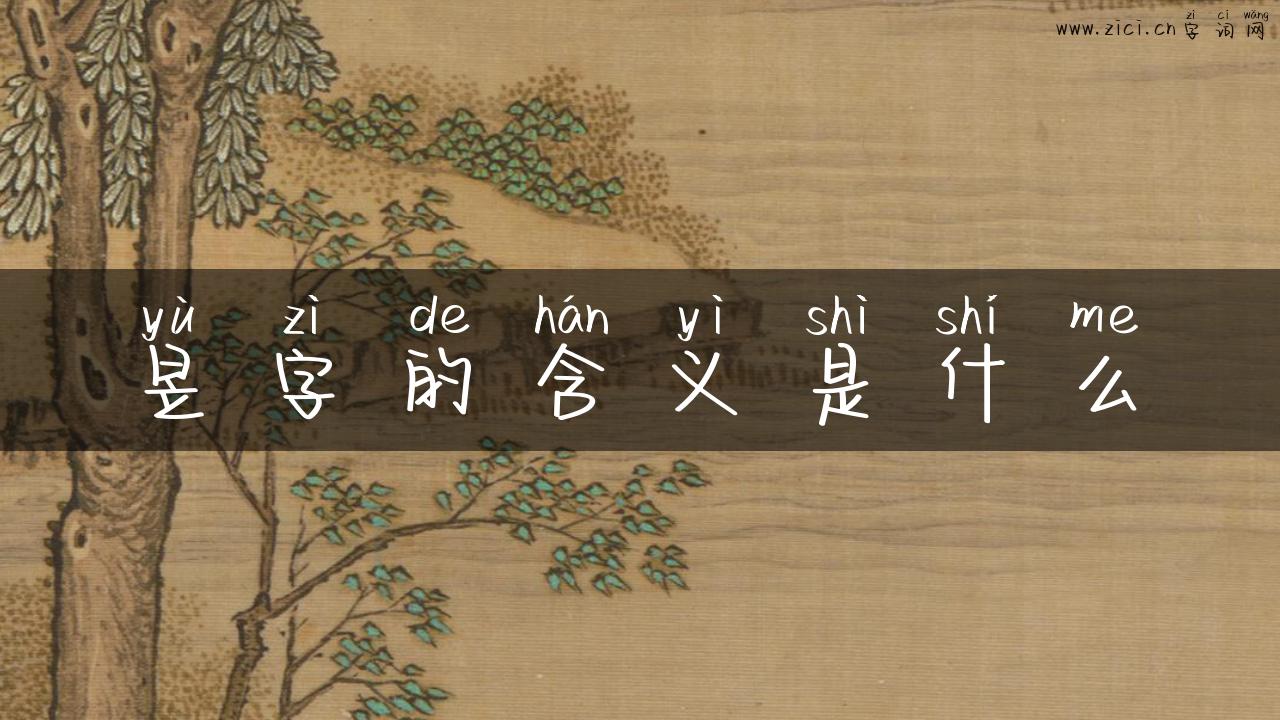 zì cí wǎng
www.zici.cn 字词网
yù zì de hán yì shì shí me
昱字的含义是什么